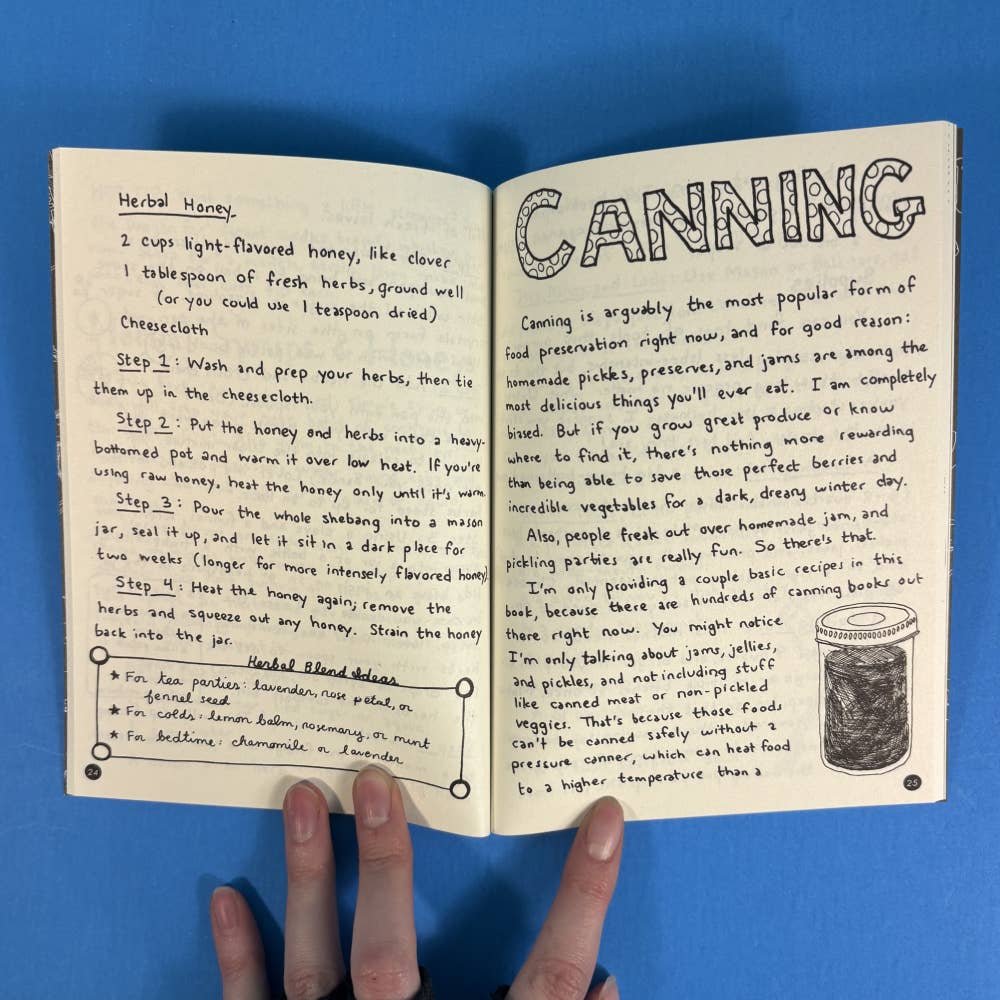 Herbal Honey
2 cups light-flavored honey, like clover
1 tablespoon of fresh herbs, ground well
(or you could use 1 teaspoon dried)
Cheesecloth
Step 1: Wash and prep your herbs, then tie
them up in the cheesecloth.
Step 2: Put the honey and herbs into a heavy-
bottomed pot and warm it over low heat. If you're
using raw honey, heat the honey only until it's warm.
Step 3: Pour the whole shebang into a mason
jar, seal it up, and let it sit in a dark place for
two weeks (longer for more intensely flavored honey).
Step 4: Heat the honey again; remove the
herbs and squeeze out any honey. Strain the honey
back into the jar.
Herbal Blend Ideas
★ For tea parties: lavender, rose petal, or
fennel seed
★ For colds: lemon balm, rosemary, or mint
★ For bedtime: chamomile or lavender
24
CANNING
Canning is arguably the most popular form of
food preservation right now, and for good reason:
homemade pickles, preserves, and jams are among the
most delicious things you'll ever eat. I am completely
biased. But if you grow great produce or know
where to find it, there's nothing more rewarding
than being able to save those perfect berries and
incredible vegetables for a dark, dreary winter day.
Also, people freak out over homemade jam, and
pickling parties are really fun. So there's that.
I'm only providing a couple basic recipes in this
book, because there are hundreds of canning books out
there right now. You might notice
I'm only talking about jams, jellies,
and pickles, and not including stuff
like canned meat or non-pickled
veggies. That's because those foods
can't be canned safely without a
pressure canner, which can heat food
to a higher temperature than a
25